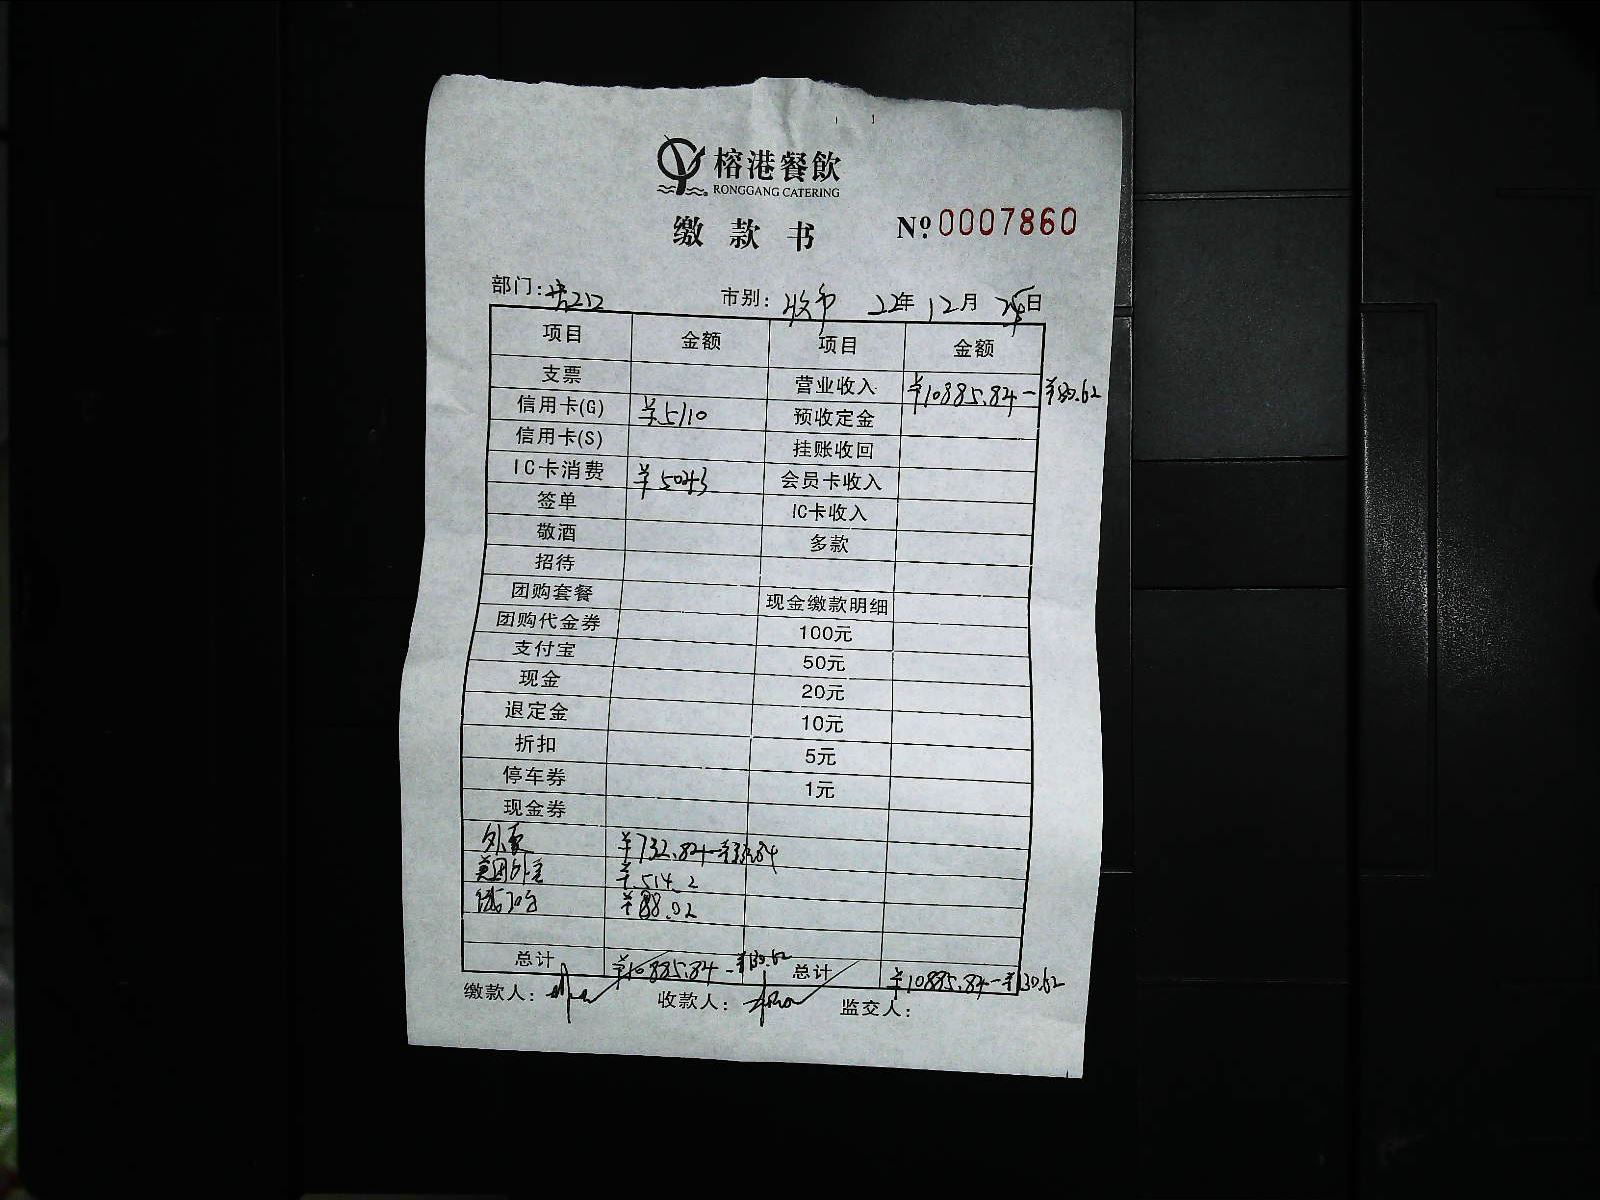 榕港餐飲
RONGGANG CATERING
缴款书 Nº 0007860
部门: 市别: 收市 22年 12月 日
项目 金额 项目 金额
支票 营业收入 ¥10885.84-¥130.62
信用卡(G) ¥5110 预收定金
信用卡(S) 挂账收回
IC卡消费 ¥5043 会员卡收入
签单 IC卡收入
敬酒 多款
招待
团购套餐 现金缴款明细
团购代金券 100元
支付宝 50元
现金 20元
退定金 10元
折扣 5元
停车券 1元
现金券
外卖 ¥732.84-
美团外卖 ¥514.2
¥88.02
总计 ¥10885.84-¥130.62 总计 ¥10885.84-¥130.62
缴款人: 收款人: 监交人: